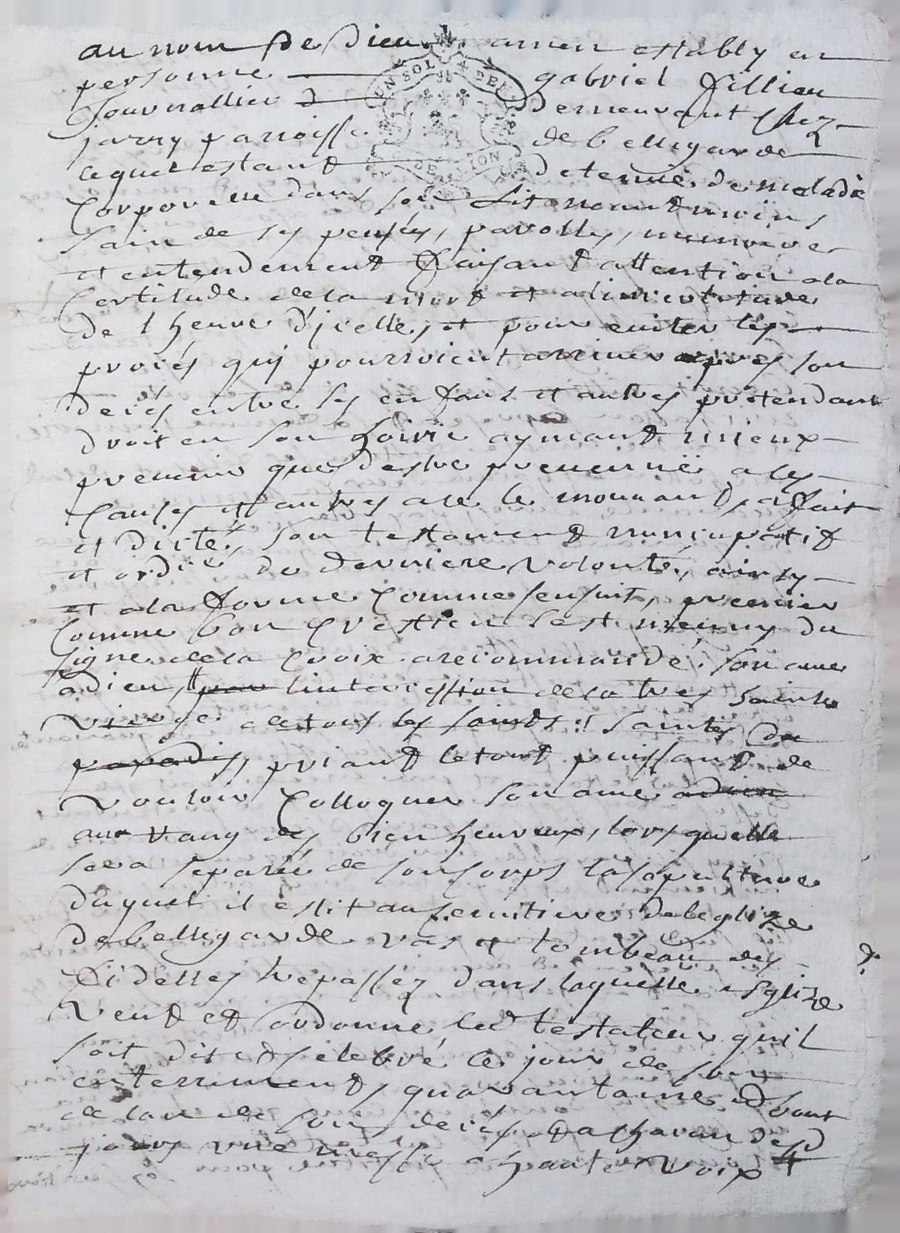 au nom de Dieu amen estably en
personne gabriel fillieu
Journallier demeurant chez
jarry parroisse de bellegarde
lequel estant detenue de maladie
Corporelle dans son lit neaudmoins
sain de ses pensés, parolles, memoires
et entendement faisant attention ala
Certitude dela mort et alincertitude
de lheure d'icelle, et pour eviter les
procés qui pourroient arriver apres son
decés entre ses enfans et autres pretendant
droit en son hoirie aymant mieux
prevenir que destre prevenue a les
Causes et autres ale mouvant, a fait
et dicté son testament nuncupatif
et ordre de derniere volonté, ainsy
et ala forme Comme sensuit, premier
Comme bon Crestien sest meuny du
signe dela Croix arecommandé son ame
a dieu par lintercession dela tres Sainte
vierge de tous les saints et saintes du
paradis, priant le tout puissant de
vouloir Colloquer son ame
au rang des bien heureux, lors quelle
sera separée de son corps la sepulture
duquel il eslit au cemitiere deleglize
de bellegarde vas et tombeau des
fidelles trépasséz dans laquelle esglize
veut et ordonne led testateur quil
soit dit et célebré le jour de son
enterrement, quarantaine et bout
de lan de son decés a chacun desd
jours une messe a haute voix
UN SOL
DEU